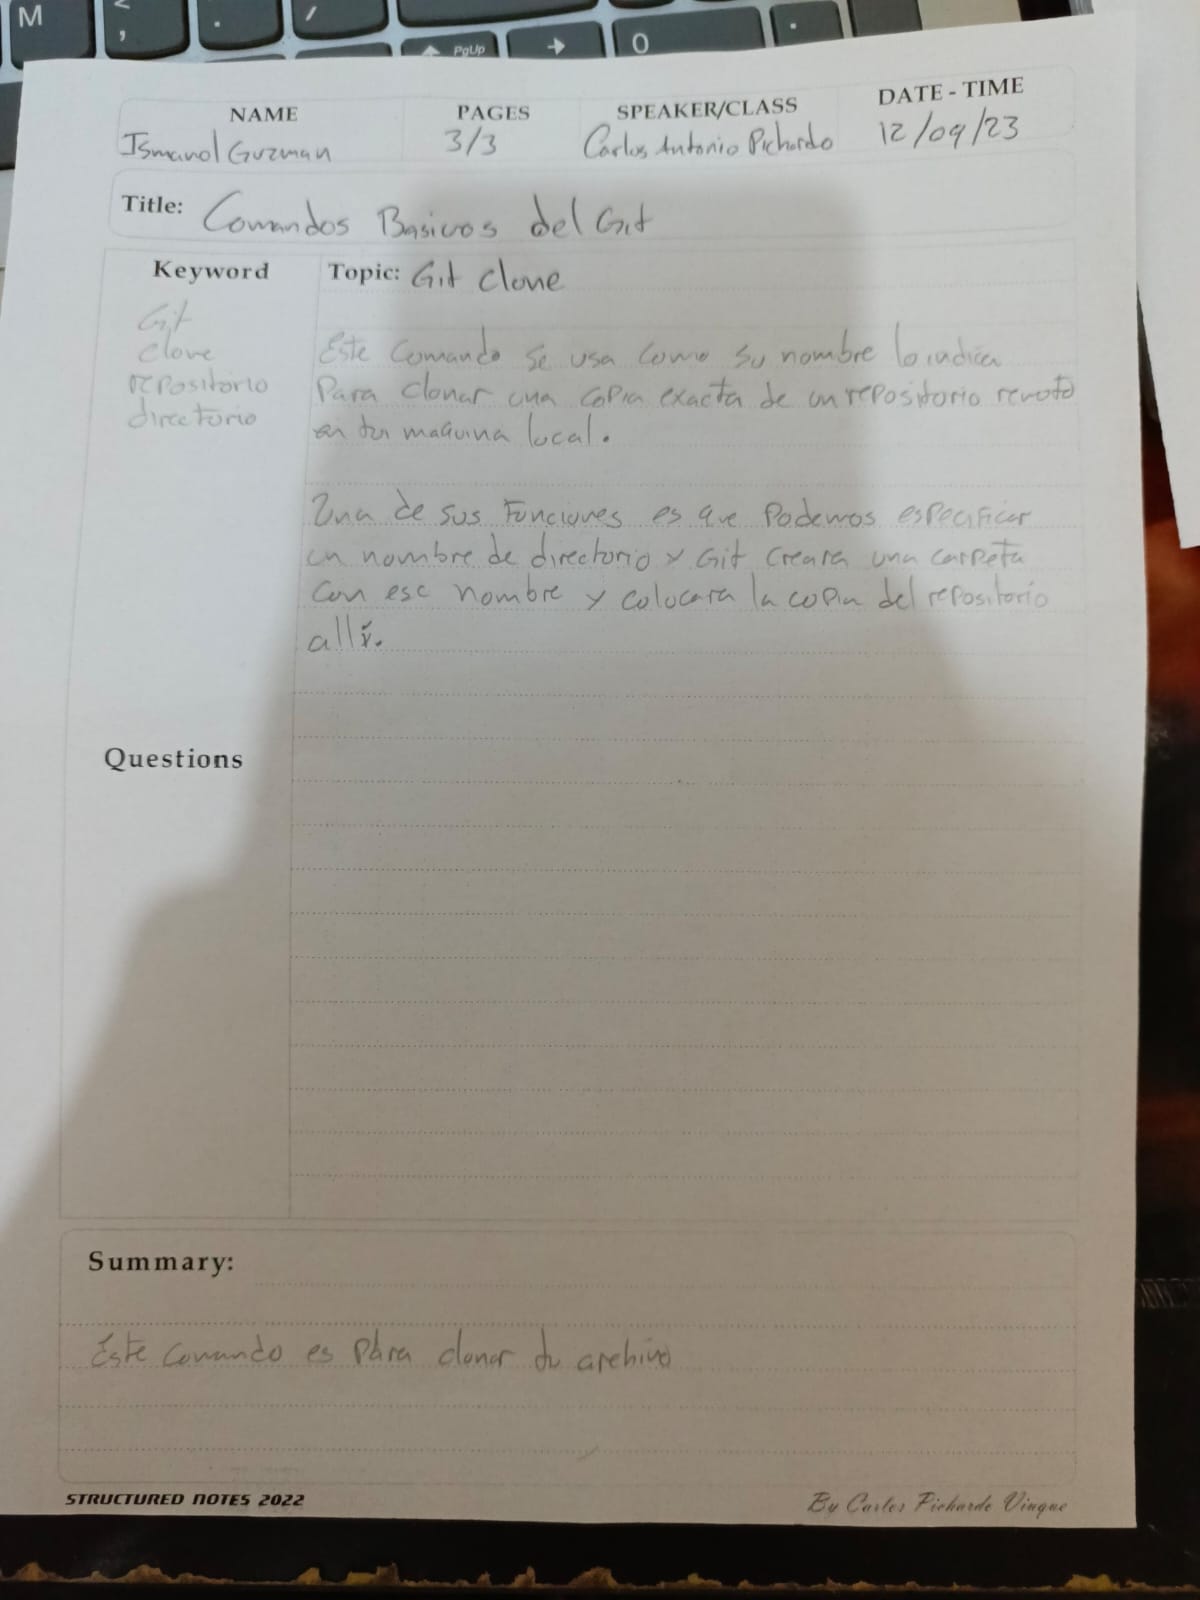 M
<
,
.
/
PgUp
→
0
.
NAME
PAGES
SPEAKER/CLASS
DATE - TIME
Ismanol Guzman
3/3
Carlos Antonio Pichardo
12/09/23
Title: Comandos Basicos del Git
Keyword
Git
clone
repositorio
directorio
Topic: Git clone
Este Comando se usa como su nombre lo indica
Para clonar una copia exacta de un repositorio remoto
en tu maquina local.
Una de sus Funciones es que Podemos especificar
un nombre de directorio y Git creara una carpeta
Con ese nombre y colocara la copia del repositorio
allí.
Questions
Summary:
Este comando es Para clonar tu archivo
STRUCTURED NOTES 2022
By Carlos Pichardo Viuque